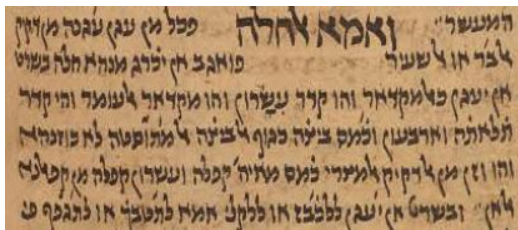 המעשר׃ ואמא ﭏחלה פכל מן עגן עגנה מן דקיק
ﭏבר או ﭏשעיר פואגב אן יכרג מנהא חלה בשרט
אן יעגן ﭏמקדאר והו קדר עשרון והו מקדאר ﭏעומר והי קדר
תלאתה וארבעון וכמס ביצה כגוף ﭏביצה ﭏמתוסטה לא כוזנהא
והו וזן מן ﭏדקיק ﭏמצרי כמס מאיה קפלה ועשרון קפלה מן קפלנא
ﭏאן ובשרט אן יעגן ללכבז או אמא לתטבך או לתגפף פי